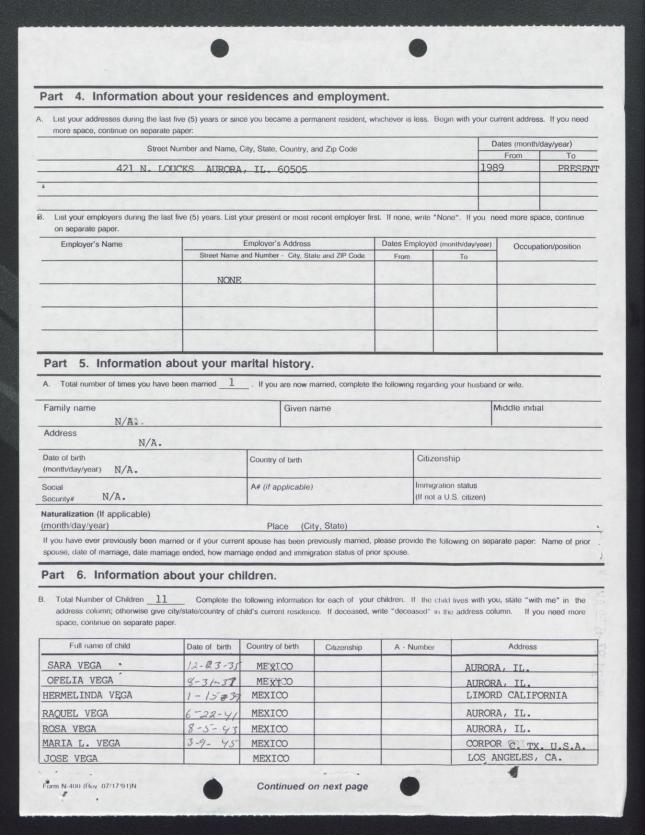 Part 4. Information about your residences and employment.
A. List your addresses during the last five (5) years or since you became a permanent resident, whichever is less. Begin with your current address. If you need
more space, continue on separate paper:
Street Number and Name, City, State, Country, and Zip Code
Dates (month/day/year)
From To
421 N. LOUCKS AURORA, IL. 60505 1989 PRESENT
B. List your employers during the last five (5) years. List your present or most recent employer first. If none, write "None". If you need more space, continue
on separate paper.
Employer's Name Employer's Address Dates Employed (month/day/year) Occupation/position
Street Name and Number - City, State and ZIP Code From To
NONE
Part 5. Information about your marital history.
A. Total number of times you have been married 1 . If you are now married, complete the following regarding your husband or wife.
Family name Given name Middle initial
N/A.
Address
N/A.
Date of birth Country of birth Citizenship
(month/day/year) N/A.
Social A# (if applicable) Immigration status
Security# N/A. (If not a U.S. citizen)
Naturalization (If applicable)
(month/day/year) Place (City, State)
If you have ever previously been married or if your current spouse has been previously married, please provide the following on separate paper: Name of prior
spouse, date of marriage, date marriage ended, how marriage ended and immigration status of prior spouse.
Part 6. Information about your children.
B. Total Number of Children 11 Complete the following information for each of your children. If the child lives with you, state "with me" in the
address column; otherwise give city/state/country of child's current residence. If deceased, write "deceased" in the address column. If you need more
space, continue on separate paper.
Full name of child Date of birth Country of birth Citizenship A - Number Address
SARA VEGA MEXICO AURORA, IL.
OFELIA VEGA 8-31-37 MEXICO AURORA, IL.
HERMELINDA VEGA 1-15-39 MEXICO LIMORD CALIFORNIA
RAQUEL VEGA 6-22-41 MEXICO AURORA, IL.
ROSA VEGA 8-5-43 MEXICO AURORA, IL.
MARIA L. VEGA 3-9-45 MEXICO CORPOR C. TX. U.S.A.
JOSE VEGA MEXICO LOS ANGELES, CA.
Form N-400 (Rev. 07/17/91)N Continued on next page